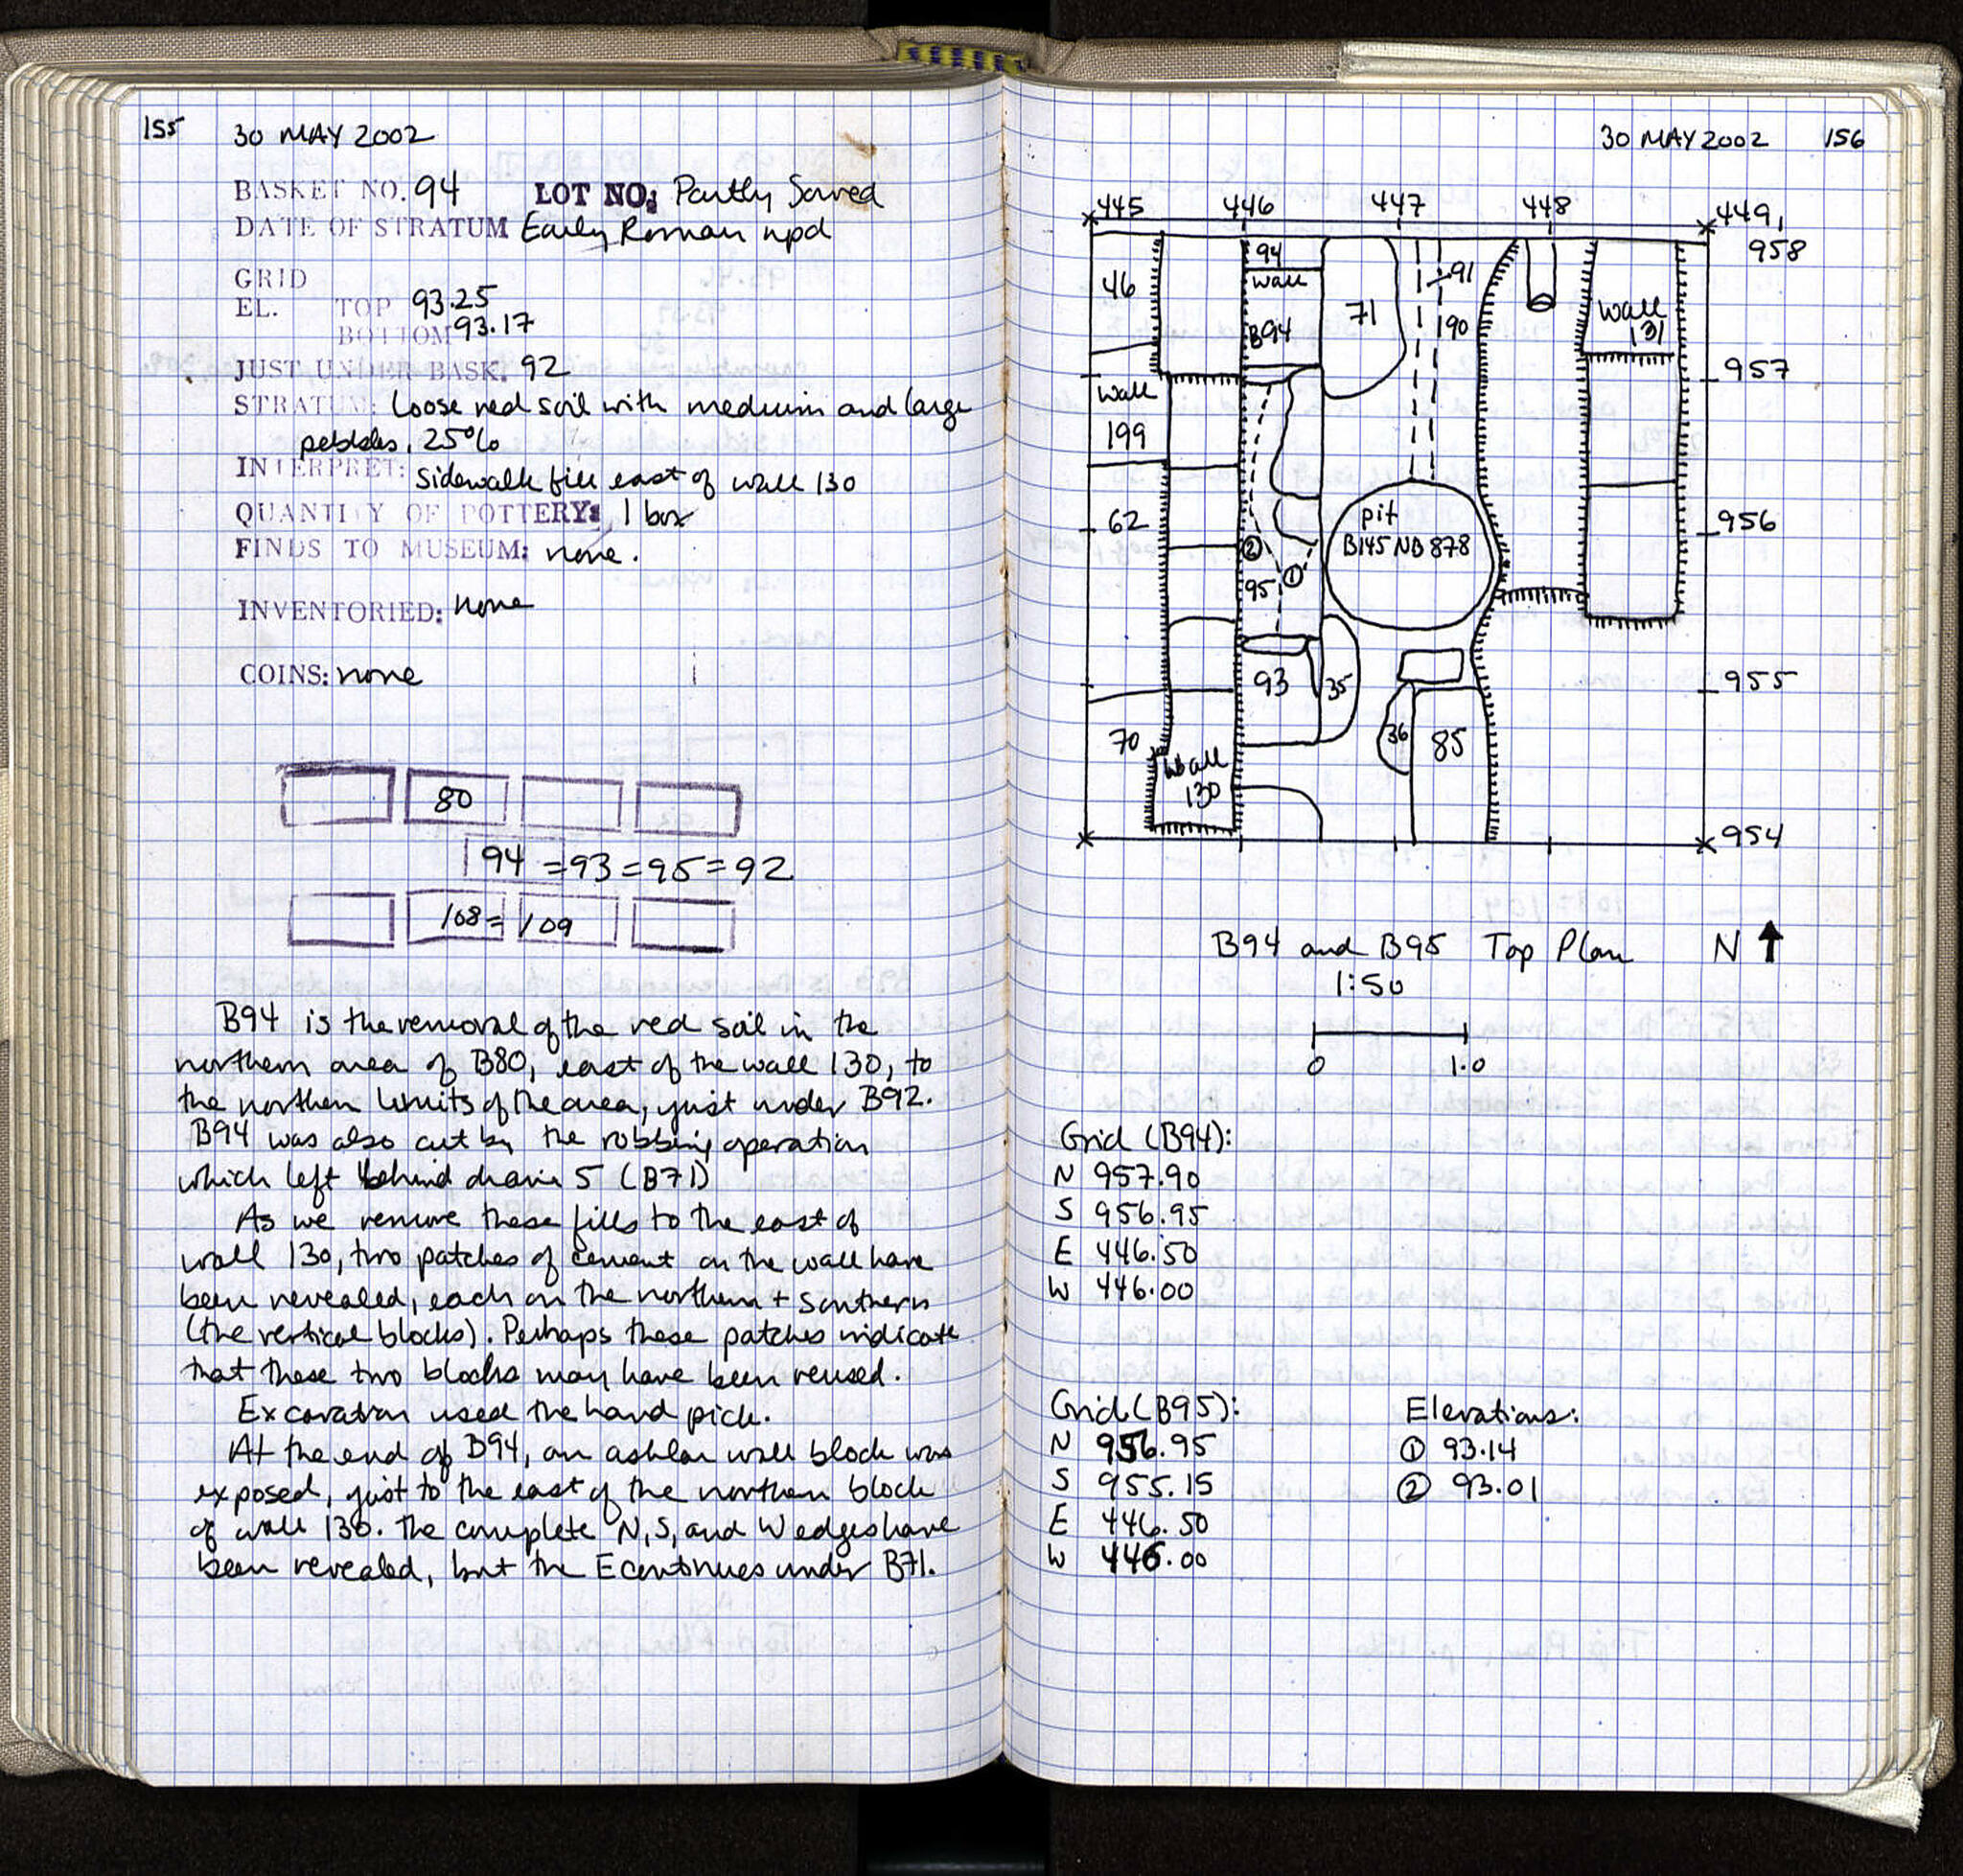 155 30 MAY 2002
BASKET NO. 94 LOT NO: Partly Saved
DATE OF STRATUM Early Roman npd
GRID
EL. TOP 93.25
BOTTOM 93.17
JUST UNDER BASK. 92
STRATUM: Loose red soil with medium and large
pebbles, 25%
INTERPRET: Sidewalk fill east of wall 130
QUANTITY OF POTTERY: 1 box
FINDS TO MUSEUM: none.
INVENTORIED: none
COINS: none
80
94 = 93 = 95 = 92
108 = 109
B94 is the removal of the red soil in the
northern area of B80, east of the wall 130, to
the northern limits of the area, just under B92.
B94 was also cut by the robbing operation
which left behind drain 5 (B71)
As we remove these fills to the east of
wall 130, two patches of cement on the wall have
been revealed, each on the northern + southern
(the vertical blocks). Perhaps these patches indicate
that these two blocks may have been reused.
Excavation used the hand pick.
At the end of B94, an ashlar wall block was
exposed, just to the east of the northern block
of wall 130. The complete N, S, and W edges have
been revealed, but the E continues under B71.
30 MAY 2002 156
445 446 447 448 449,
958
94
wall
B94
46
71
91
190
wall
131
957
wall
199
62
956
pit
B145 NB 878
②
①
95
93
35
955
70
36
85
wall
130
954
B94 and B95 Top Plan N
1:50
0 1.0
Grid (B94):
N 957.90
S 956.95
E 446.50
W 446.00
Grid (B95):
N 956.95
S 955.15
E 446.50
W 446.00
Elevations:
① 93.14
② 93.01